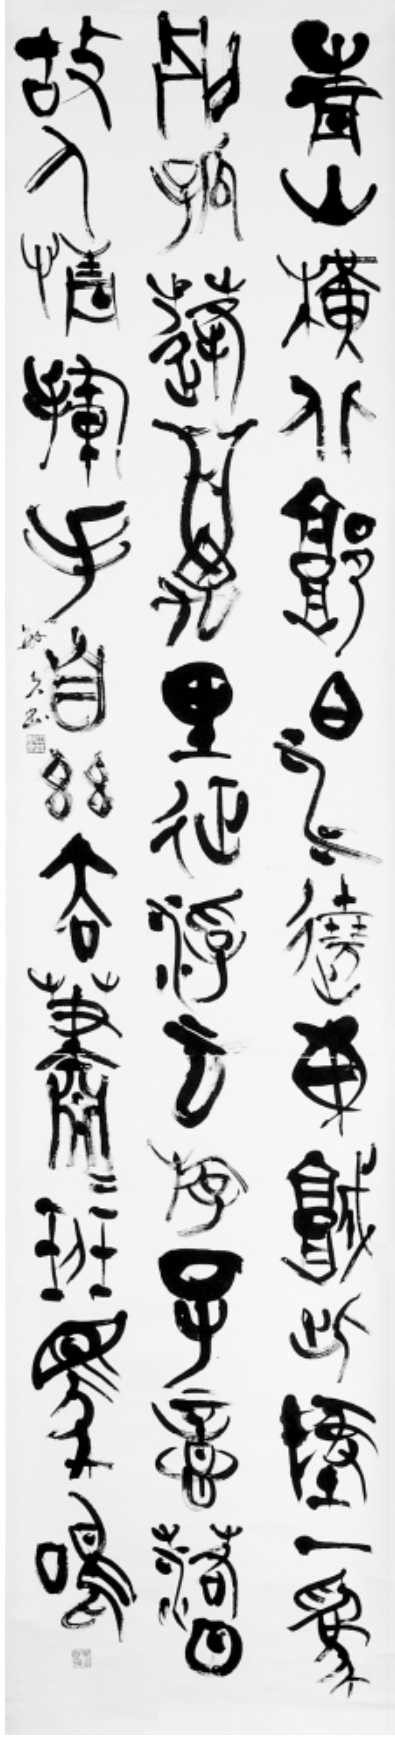 青山橫北郭白水遶東城此地一為
別孤蓬萬里征浮雲游子意落日
故人情揮手自茲去蕭=班馬鳴